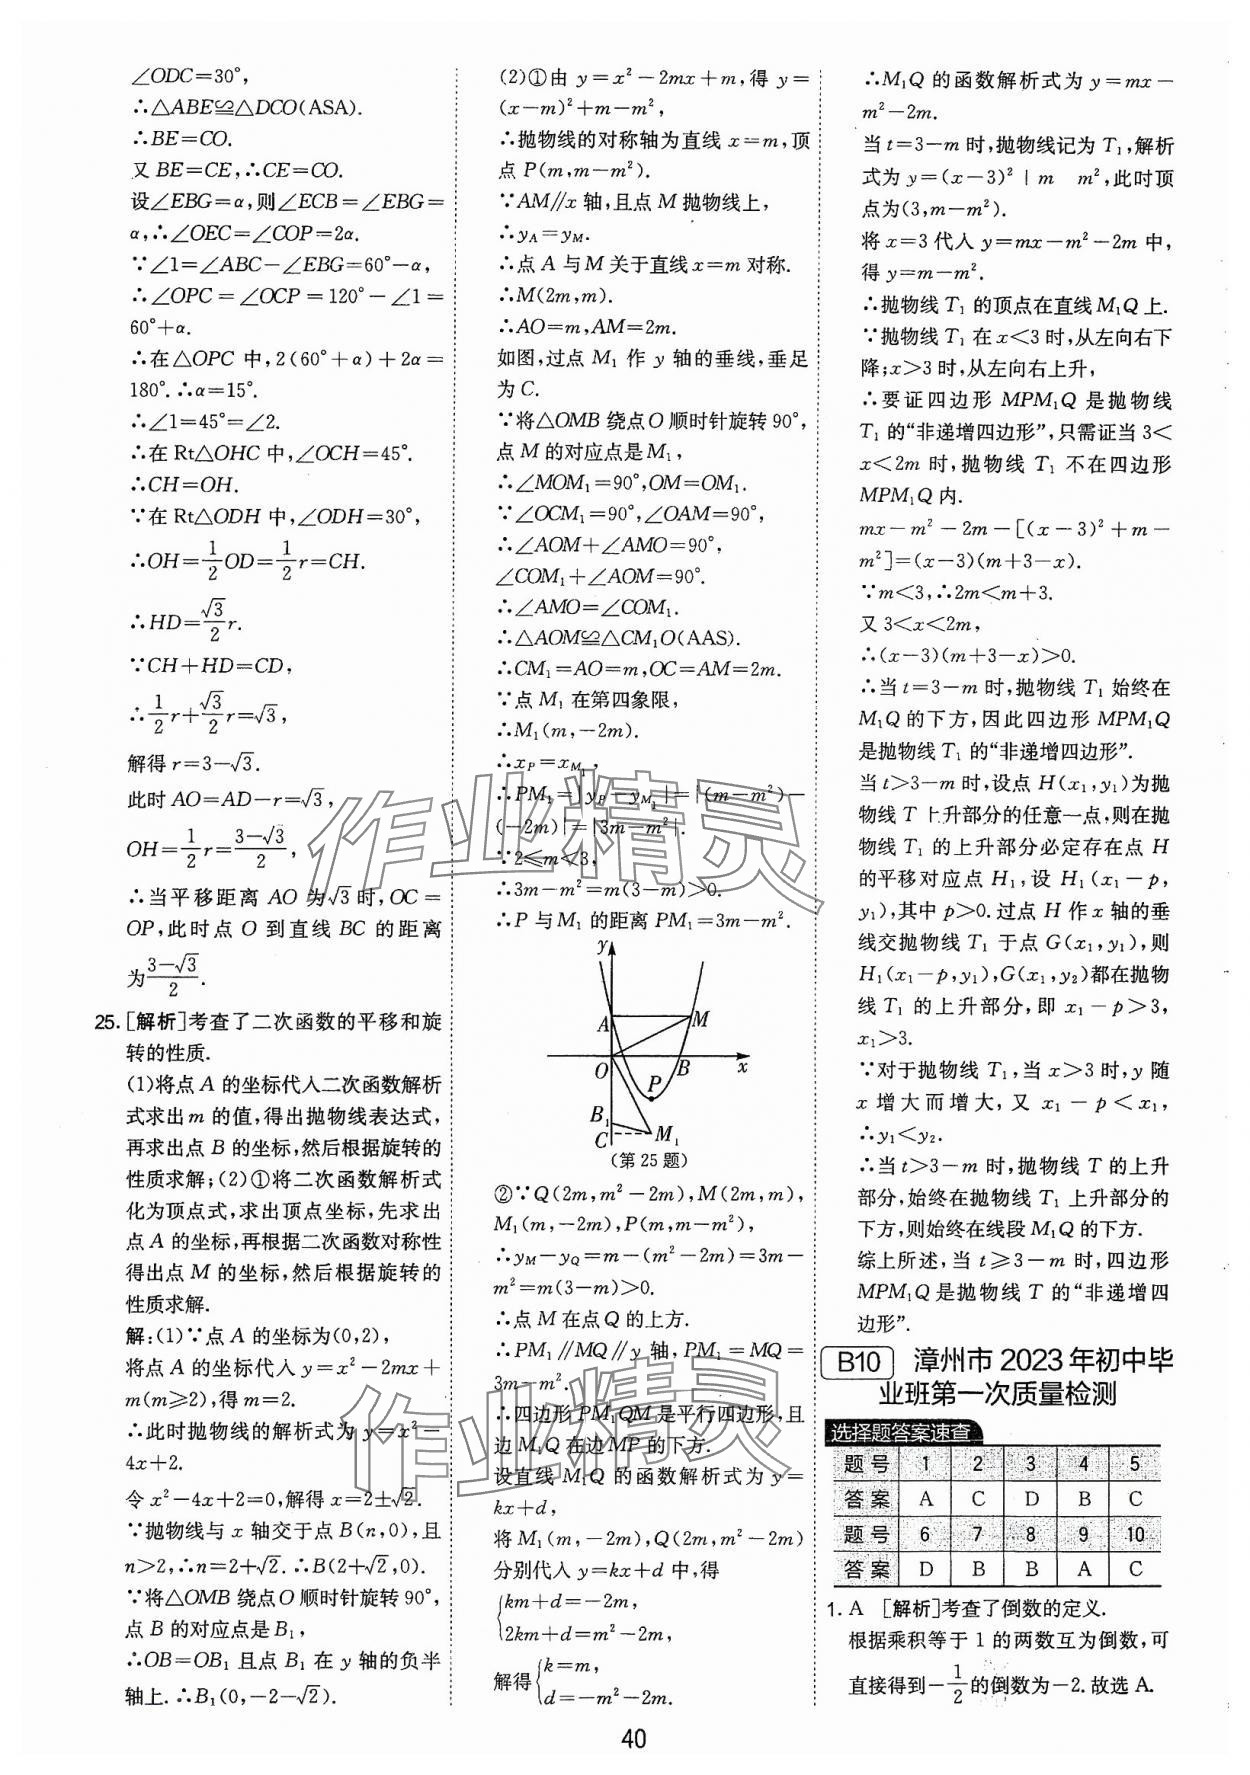 ∠ODC=30°,
∴△ABE≌△DCO(ASA).
∴BE=CO.
又 BE=CE,∴CE=CO.
设∠EBG=α,则∠ECB=∠EBG=
α,∴∠OEC=∠COP=2α.
∵∠1=∠ABC-∠EBG=60°-α,
∴∠OPC=∠OCP=120°-∠1=
60°+α.
∴在△OPC 中,2(60°+α)+2α=
180°.∴α=15°.
∴∠1=45°=∠2.
∴在 Rt△OHC 中,∠OCH=45°.
∴CH=OH.
∵在 Rt△ODH 中,∠ODH=30°,
∴OH=1/2OD=1/2r=CH.
∴HD=√3/2r.
∵CH+HD=CD,
∴1/2r+√3/2r=√3,
解得 r=3-√3.
此时 AO=AD-r=√3,
OH=1/2r=(3-√3)/2,
∴当平移距离 AO 为√3时,OC=
OP,此时点 O 到直线 BC 的距离
为(3-√3)/2.
25.[解析]考查了二次函数的平移和旋
转的性质.
(1)将点 A 的坐标代入二次函数解析
式求出 m 的值,得出抛物线表达式,
再求出点 B 的坐标,然后根据旋转的
性质求解;(2)①将二次函数解析式
化为顶点式,求出顶点坐标,先求出
点 A 的坐标,再根据二次函数对称性
得出点 M 的坐标,然后根据旋转的
性质求解.
解:(1)∵点 A 的坐标为(0,2),
将点 A 的坐标代入 y=x²-2mx+
m(m≥2),得 m=2.
∴此时抛物线的解析式为 y=x²-
4x+2.
令 x²-4x+2=0,解得 x=2±√2.
∵抛物线与 x 轴交于点 B(n,0),且
n>2,∴n=2+√2.∴B(2+√2,0).
∵将△OMB 绕点 O 顺时针旋转 90°,
点 B 的对应点是 B₁,
∴OB=OB₁ 且点 B₁ 在 y 轴的负半
轴上.∴B₁(0,-2-√2).
(2)①由 y=x²-2mx+m,得 y=
(x-m)²+m-m²,
∴抛物线的对称轴为直线 x=m,顶
点 P(m,m-m²).
∵AM∥x 轴,且点 M 抛物线上,
∴y_A=y_M.
∴点 A 与 M 关于直线 x=m 对称.
∴M(2m,m).
∴AO=m,AM=2m.
如图,过点 M₁ 作 y 轴的垂线,垂足
为 C.
∵将△OMB 绕点 O 顺时针旋转 90°,
点 M 的对应点是 M₁,
∴∠MOM₁=90°,OM=OM₁.
∵∠OCM₁=90°,∠OAM=90°,
∴∠AOM+∠AMO=90°,
∠COM₁+∠AOM=90°.
∴∠AMO=∠COM₁.
∴△AOM≌△CM₁O(AAS).
∴CM₁=AO=m,OC=AM=2m.
∵点 M₁ 在第四象限,
∴M₁(m,-2m).
∴x_P=x_M₁,
∴PM₁=|y_P-y_M₁|=|(m-m²)-
(-2m)|=|3m-m²|.
∵2≤m<3,
∴3m-m²=m(3-m)>0.
∴P 与 M₁ 的距离 PM₁=3m-m².
y
A
M
O
B
x
P
B₁
C
M₁
(第 25 题)
②∵Q(2m,m²-2m),M(2m,m),
M₁(m,-2m),P(m,m-m²),
∴y_M-y_Q=m-(m²-2m)=3m-
m²=m(3-m)>0.
∴点 M 在点 Q 的上方.
∴PM₁∥MQ∥y 轴,PM₁=MQ=
3m-m².
∴四边形 PM₁QM 是平行四边形,且
边 M₁Q 在边 MP 的下方.
设直线 M₁Q 的函数解析式为 y=
kx+d,
将 M₁(m,-2m),Q(2m,m²-2m)
分别代入 y=kx+d 中,得
{km+d=-2m,
2km+d=m²-2m,
解得{k=m,
d=-m²-2m.
∴M₁Q 的函数解析式为 y=mx-
m²-2m.
当 t=3-m 时,抛物线记为 T₁,解析
式为 y=(x-3)² | m m²,此时顶
点为(3,m-m²).
将 x=3 代入 y=mx-m²-2m 中,
得 y=m-m².
∴抛物线 T₁ 的顶点在直线 M₁Q 上.
∵抛物线 T₁ 在 x<3 时,从左向右下
降;x>3 时,从左向右上升,
∴要证四边形 MPM₁Q 是抛物线
T₁ 的“非递增四边形”,只需证当 3<
x<2m 时,抛物线 T₁ 不在四边形
MPM₁Q 内.
mx-m²-2m-[(x-3)²+m-
m²]=(x-3)(m+3-x).
∵m<3,∴2m<m+3.
又 3<x<2m,
∴(x-3)(m+3-x)>0.
∴当 t=3-m 时,抛物线 T₁ 始终在
M₁Q 的下方,因此四边形 MPM₁Q
是抛物线 T₁ 的“非递增四边形”.
当 t>3-m 时,设点 H(x₁,y₁)为抛
物线 T 上升部分的任意一点,则在抛
物线 T₁ 的上升部分必定存在点 H
的平移对应点 H₁,设 H₁(x₁-p,
y₁),其中 p>0.过点 H 作 x 轴的垂
线交抛物线 T₁ 于点 G(x₁,y₁),则
H₁(x₁-p,y₁),G(x₁,y₂)都在抛物
线 T₁ 的上升部分,即 x₁-p>3,
x₁>3.
∵对于抛物线 T₁,当 x>3 时,y 随
x 增大而增大,又 x₁-p<x₁,
∴y₁<y₂.
∴当 t>3-m 时,抛物线 T 的上升
部分,始终在抛物线 T₁ 上升部分的
下方,则始终在线段 M₁Q 的下方.
综上所述,当 t≥3-m 时,四边形
MPM₁Q 是抛物线 T 的“非递增四
边形”.
B10 漳州市 2023 年初中毕
业班第一次质量检测
选择题答案速查
题号 1 2 3 4 5
答案 A C D B C
题号 6 7 8 9 10
答案 D B B A C
1. A [解析]考查了倒数的定义.
根据乘积等于 1 的两数互为倒数,可
直接得到-1/2的倒数为-2.故选 A.
40
作业精灵
作业精灵